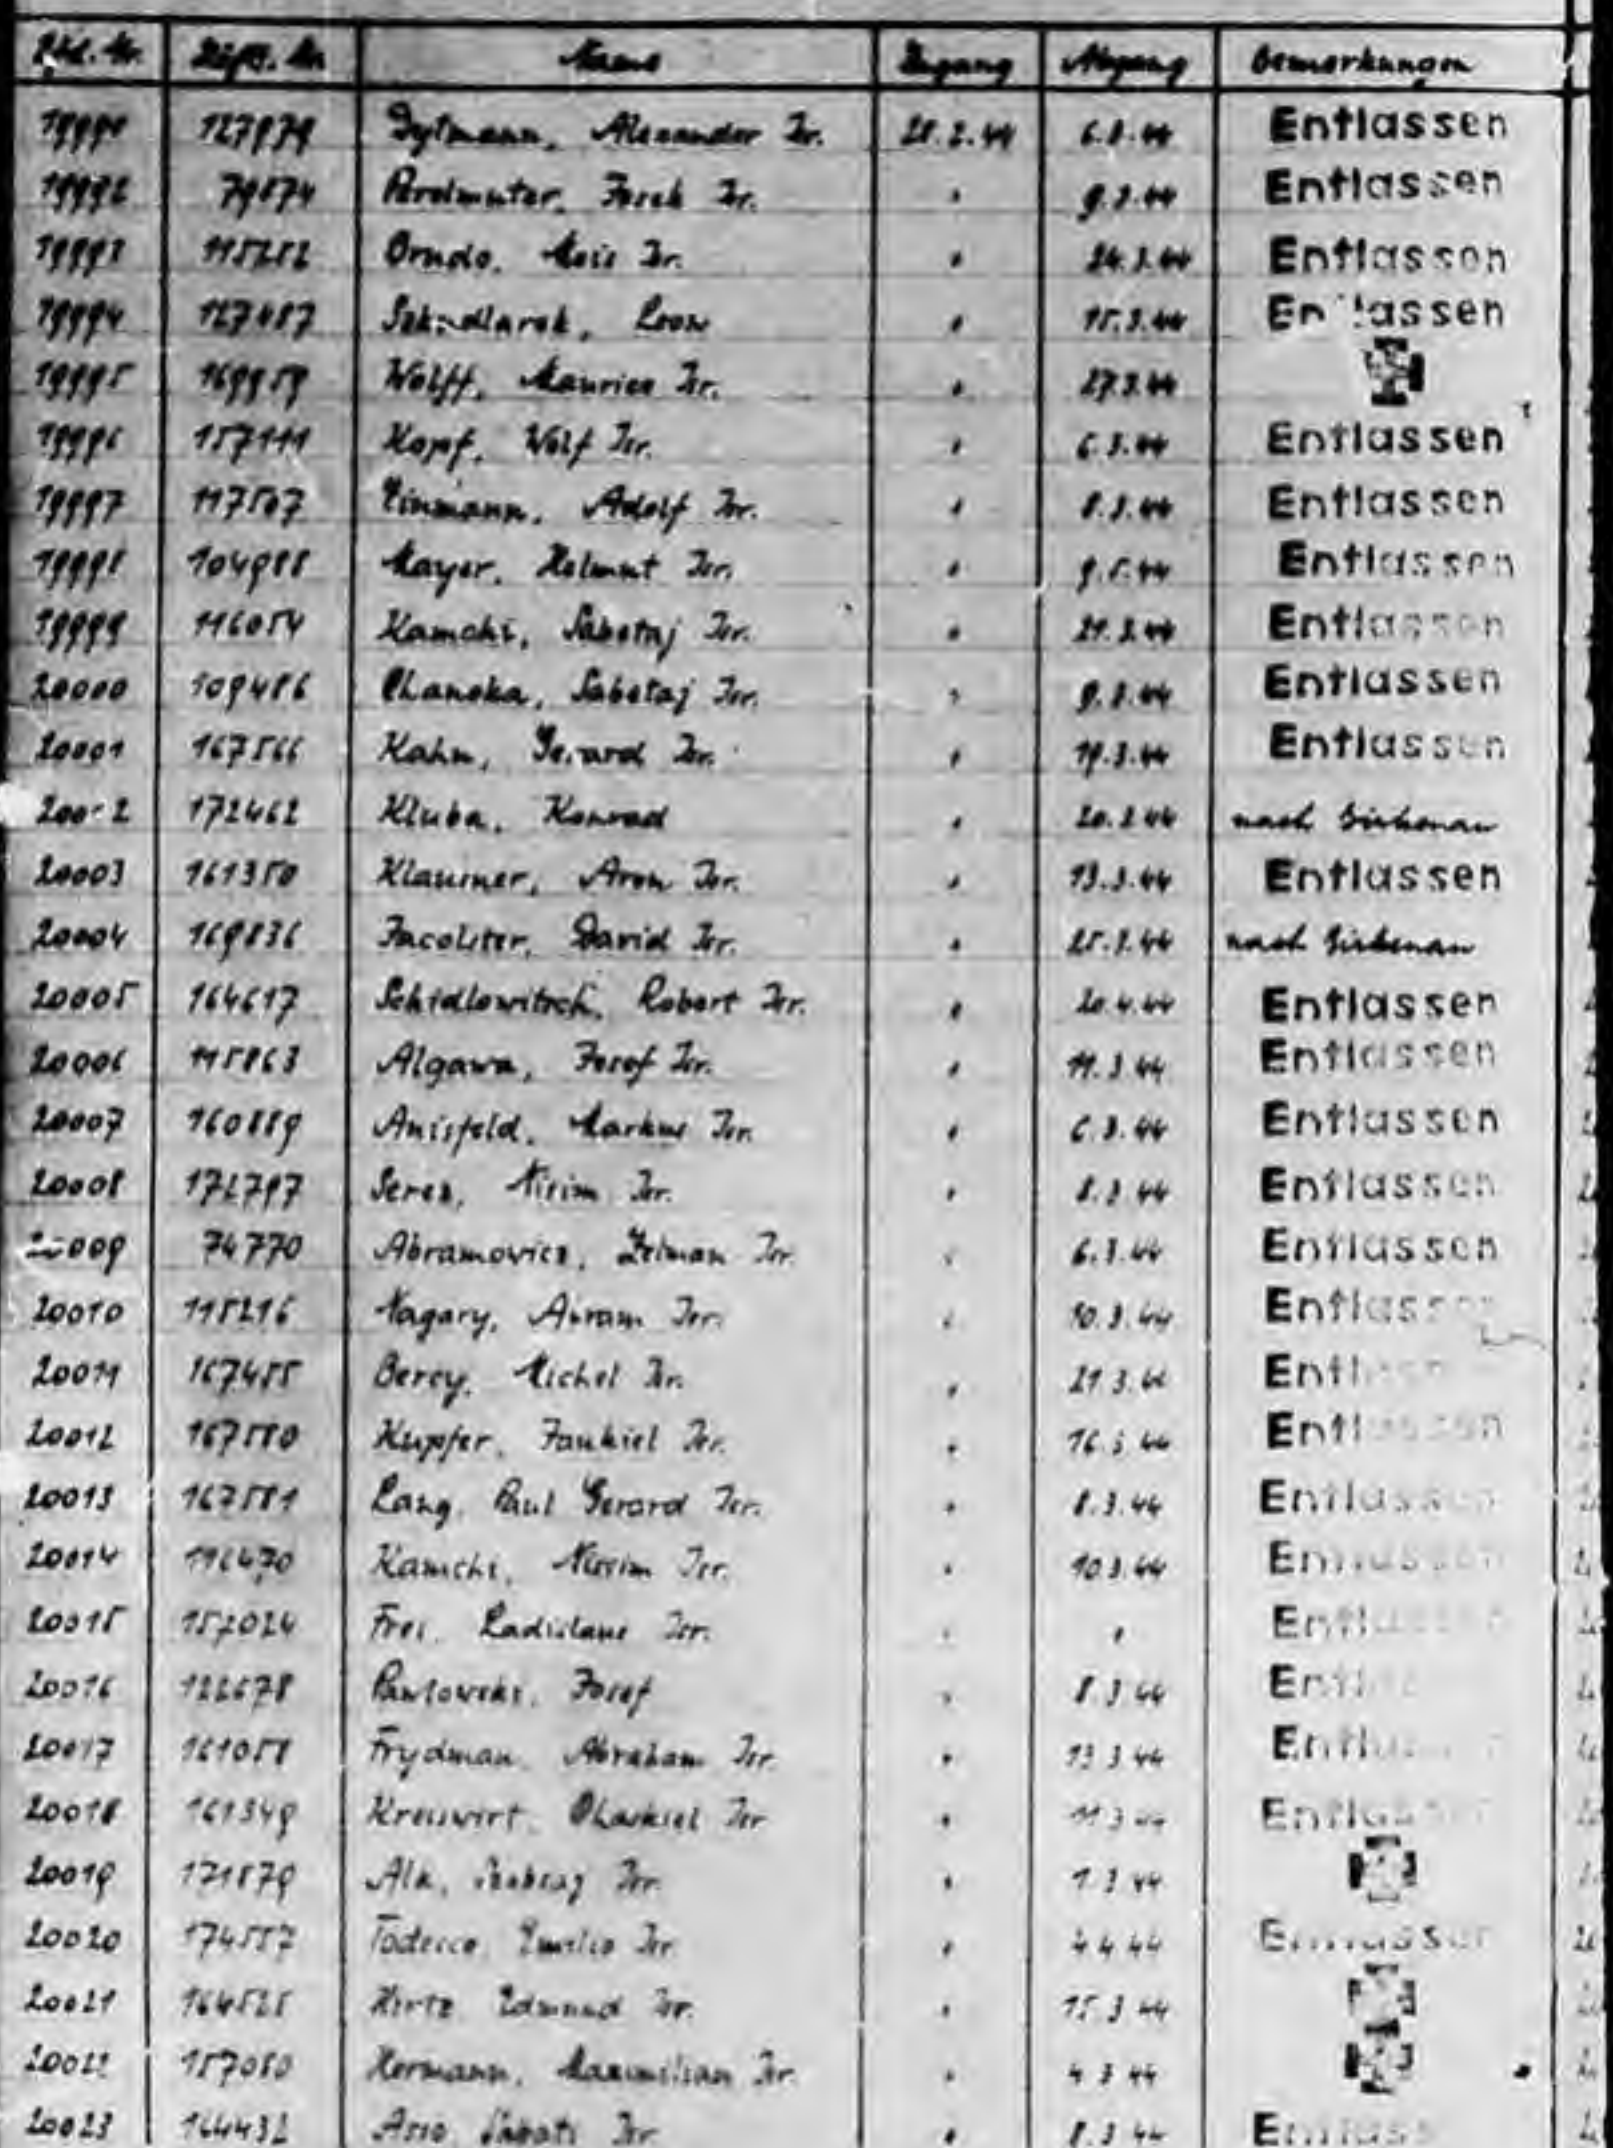 Lfd. Nr. Häftl. Nr. Name Zugang Abgang Bemerkungen
19991 127979 Dytmann, Alexander Isr. 28.2.44 6.3.44 Entlassen
19992 79574 Perelmuter, Josek Isr. " 9.3.44 Entlassen
19993 115252 Orudo, Mois Isr. " 24.3.44 Entlassen
19994 127487 Leow " 15.3.44 Entlassen
19995 169959 Wolff, Maurice Isr. " 27.3.44
19996 157111 Kopf, Wolf Isr. " 6.3.44 Entlassen
19997 117507 Zinmann, Adolf Isr. " 8.3.44 Entlassen
19998 104988 Mayer, Helmut Isr. " 9.5.44 Entlassen
19999 116054 Kamchi, Sabetaj Isr. " 21.3.44 Entlassen
20000 109486 Chanoka, Sabetaj Isr. " 9.3.44 Entlassen
20001 167566 Kahn, Gerard Isr. " 19.3.44 Entlassen
20002 172462 Kluba, Konrad " 20.3.44 nach Birkenau
20003 161350 Klausner, Aron Isr. " 13.3.44 Entlassen
20004 169836 David Isr. " 25.3.44 nach Birkenau
20005 164617 Schidlowitsch, Robert Isr. " 20.4.44 Entlassen
20006 115863 Algawa, Josef Isr. " 11.3.44 Entlassen
20007 160889 Anisfeld, Markus Isr. " 6.3.44 Entlassen
20008 172797 Seres, Nisim Isr. " 8.3.44 Entlassen
20009 74770 Abramowicz, Zelman Isr. " 6.3.44 Entlassen
20010 115216 Nagary, Avram Isr. " 10.3.44 Entlassen
20011 167455 Bercy, Michel Isr. " 21.3.44 Entlassen
20012 167580 Kupfer, Jankiel Isr. " 16.3.44 Entlassen
20013 167581 Lang, Paul Gerard Isr. " 8.3.44 Entlassen
20014 116470 Kamchi, Nissim Isr. " 10.3.44 Entlassen
20015 157024 Frei, Ladislaus Isr. " " Entlassen
20016 122678 Pawlowski, Josef " 8.3.44 Entlassen
20017 161058 Frydman, Abraham Isr. " 13.3.44 Entlassen
20018 161349 Kreiswirt, Chaskiel Isr. " 11.3.44 Entlassen
20019 171879 Isr. " 1.3.44
20020 174557 Tedesco, Emilio Isr. " 4.4.44 Entlassen
20021 164525 Hertz, Edmund Isr. " 15.3.44
20022 157080 Hermann, Maximilian Isr. " 4.3.44
20023 164432 Isr. " 8.3.44 Entlassen